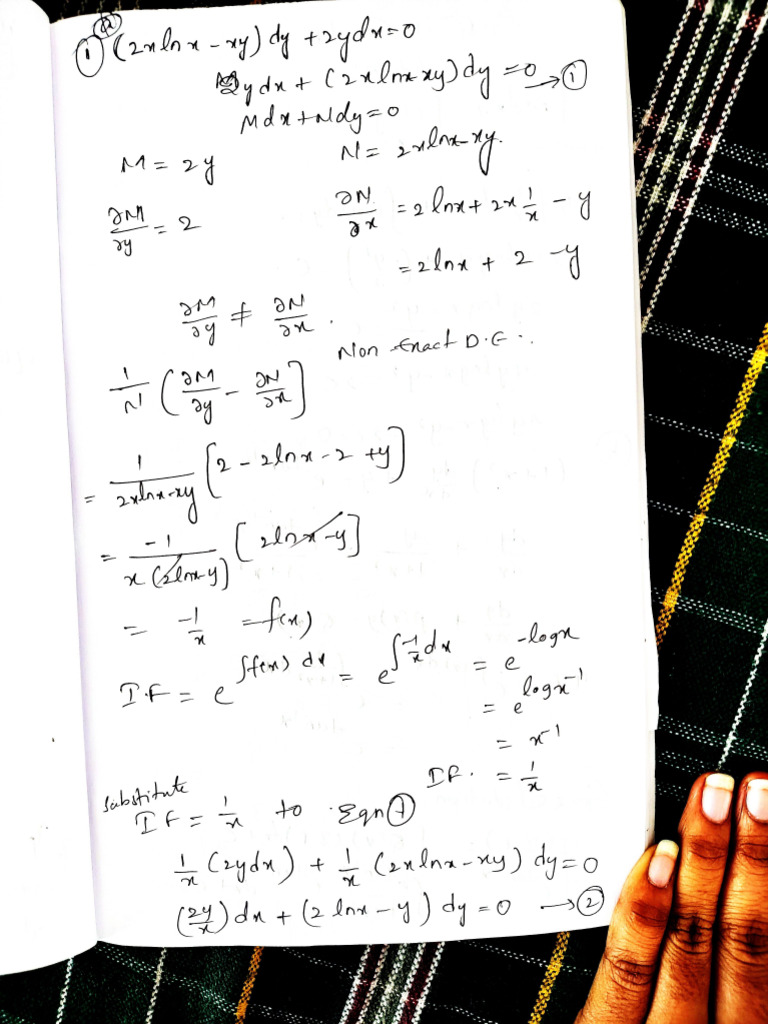 ① ⓐ (2x ln x - xy) dy + 2y dx = 0
2y dx + (2x ln x - xy) dy = 0 → ①
M dx + N dy = 0
M = 2y N = 2x ln x - xy.
∂M/∂y = 2 ∂N/∂x = 2 ln x + 2x 1/x - y
= 2 ln x + 2 - y
∂M/∂y ≠ ∂N/∂x .
Non Exact D.E .
1/N (∂M/∂y - ∂N/∂x]
= 1/(2x ln x - xy) [2 - 2 ln x - 2 + y]
= -1/(x (2 ln x - y)] [2 ln x - y]
= -1/x = f(x)
I.F = e^∫f(x) dx = e^∫-1/x dx = e^-log x
= e^log x^-1
= x^-1
I F. = 1/x
Substitute
I F = 1/x to Eqn ①
1/x (2y dx) + 1/x (2x ln x - xy) dy = 0
(2y/x) dx + (2 ln x - y) dy = 0 → ②